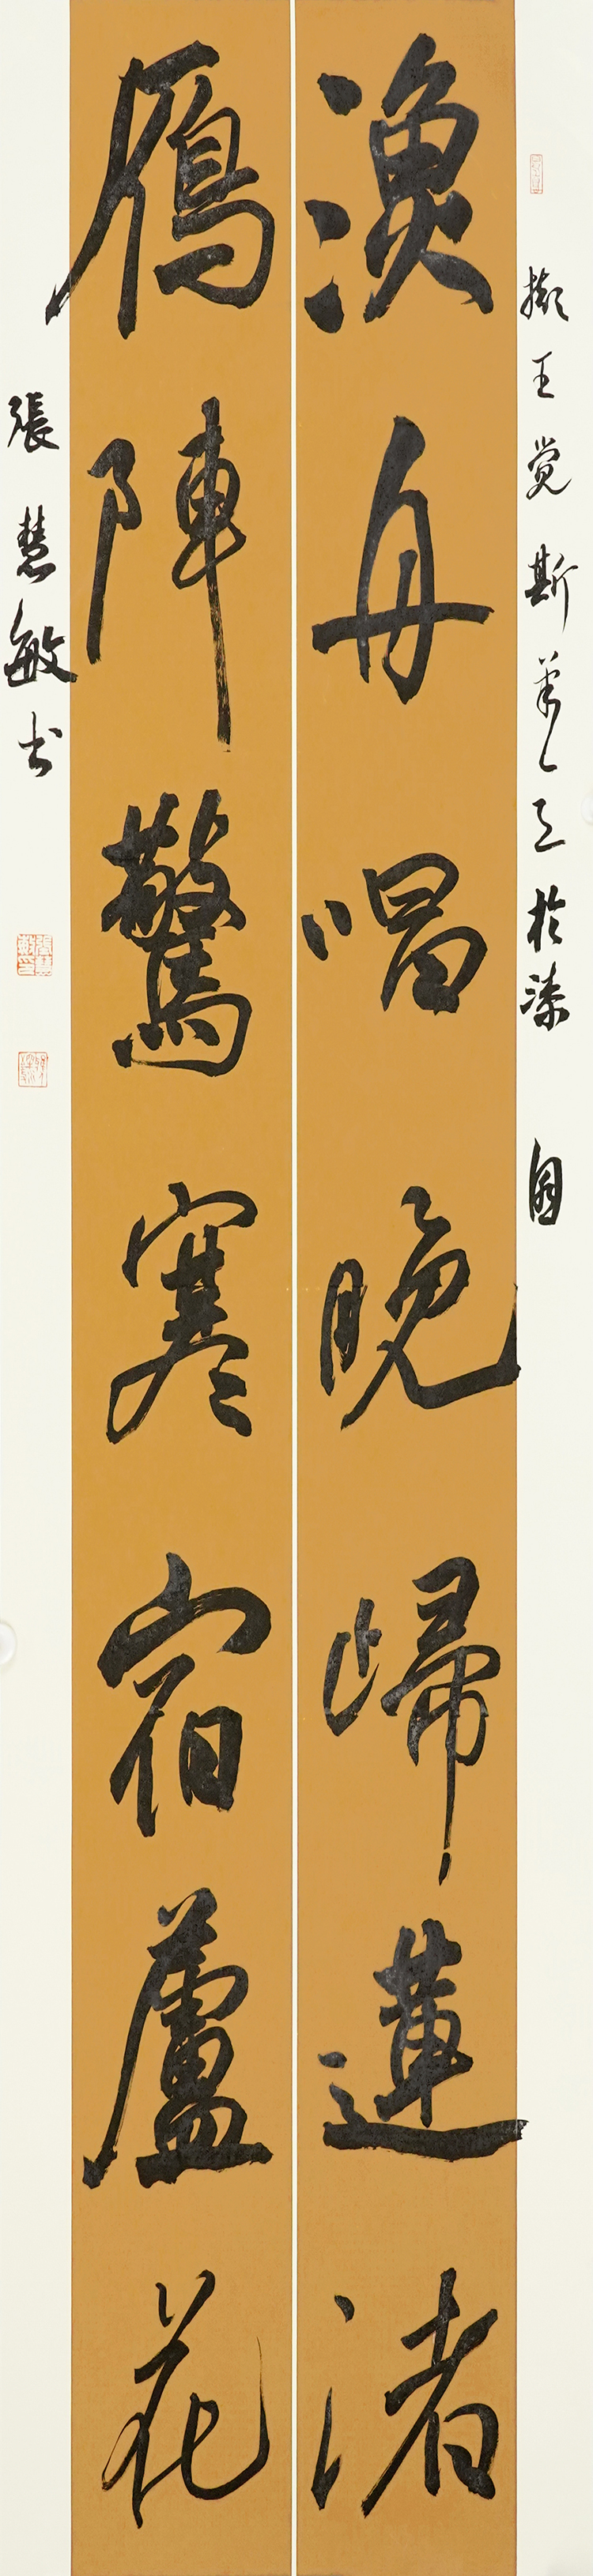 擬王觉斯筆意於漆園
漁舟唱晚歸蓮渚
鴈陣驚寒宿蘆花
張慧敏书